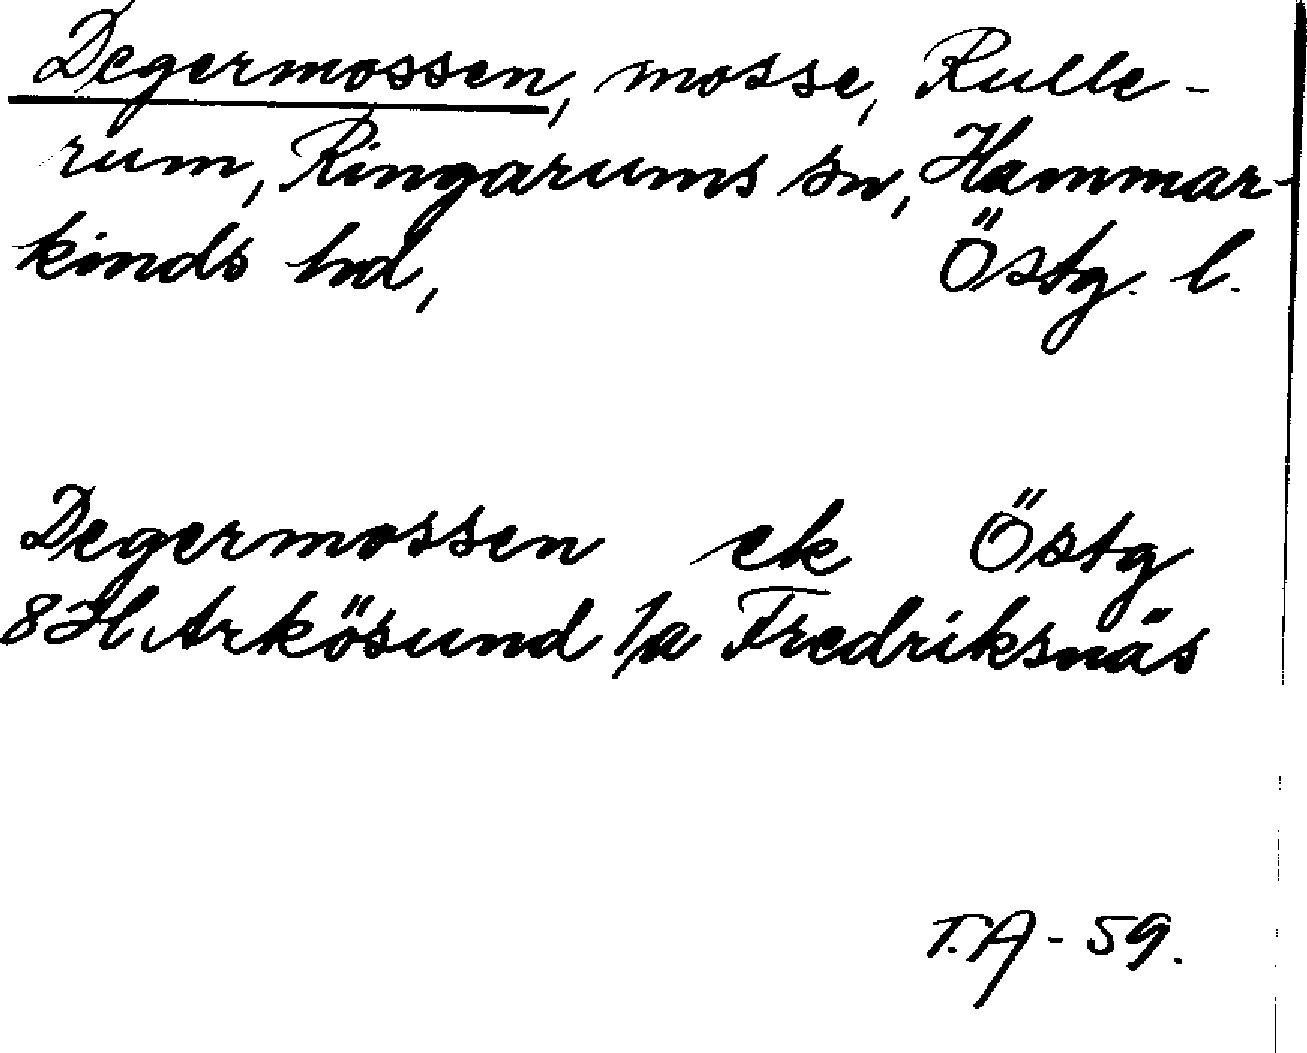 Degermossen, mosse, Rulle-
rum, Ringarums sn, Hammar-
kinds hd, Östg. l.
Degermossen ek Östg
8H Arkösund 1/a Fredriksnäs
T.A - 59.